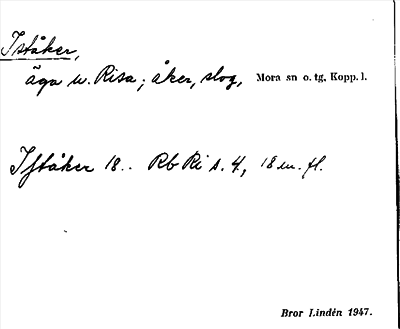 Iståker,
äga u. Risa; åker, slog, Mora sn o. tg, Kopp. l.
Iståker 18.. Rb Ri s. 4, 18 m. fl.
Bror Lindén 1947.